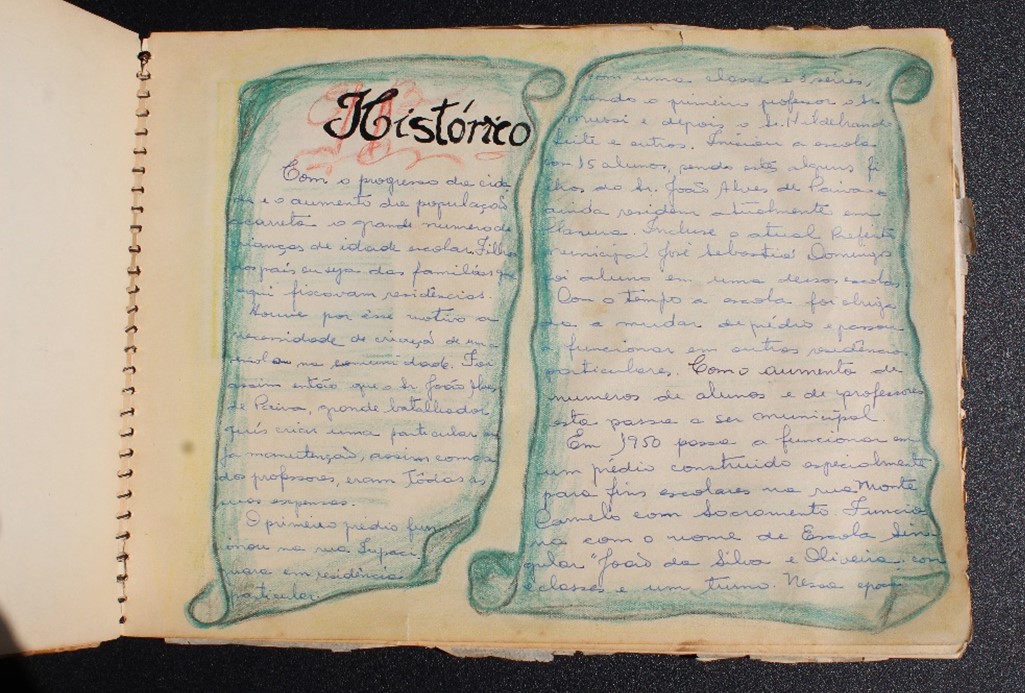 Histórico
Com o progresso da cida
de e o aumento da população
acarreta o grande numero de
crianças de idade escolar. Filhos
dos país ou seja das familias que
aqui fixavam residências.
Houve por êsse motivo a
necessidade de criaçaõ de uma
escola na comunidade. Foi
assim então que o Sr. João Alves
de Paiva, grande batalhador
quis criar uma particular cu
ja manutençaõ, assim como a
dos professores, eram tôdas as
suas expensas.
O primeiro prédio fun
cionou na rua
para em residência
particular.
com uma classe e 3 séries,
sendo o primeiro professor o Sr
Mussi e depois o Sr. Hildebrando
Leite e outros. Iniciou a escola
com 15 alunos, sendo estes alguns fi
lhos do Sr. João Alves de Paiva e
ainda residem atualmente em
Incluse o atual Prefeito
municipal José Sebastião Domingos
foi aluno em uma dessas escolas
Com o tempo a escola foi obriga
da a mudar de prédio e passou
a funcionar em outras residências
particulares. Com o aumento de
numeros de alunos e de professores
esta passa a ser municipal.
Em 1950 passa a funcionar em
um prédio construido especialmente
para fins escolares na rua Monte
Carmelo com Sacramento. Funcio
na com o nome de Escola Sin
gular "João da Silva e Oliveira com
classes e um turno. Nessa epoca